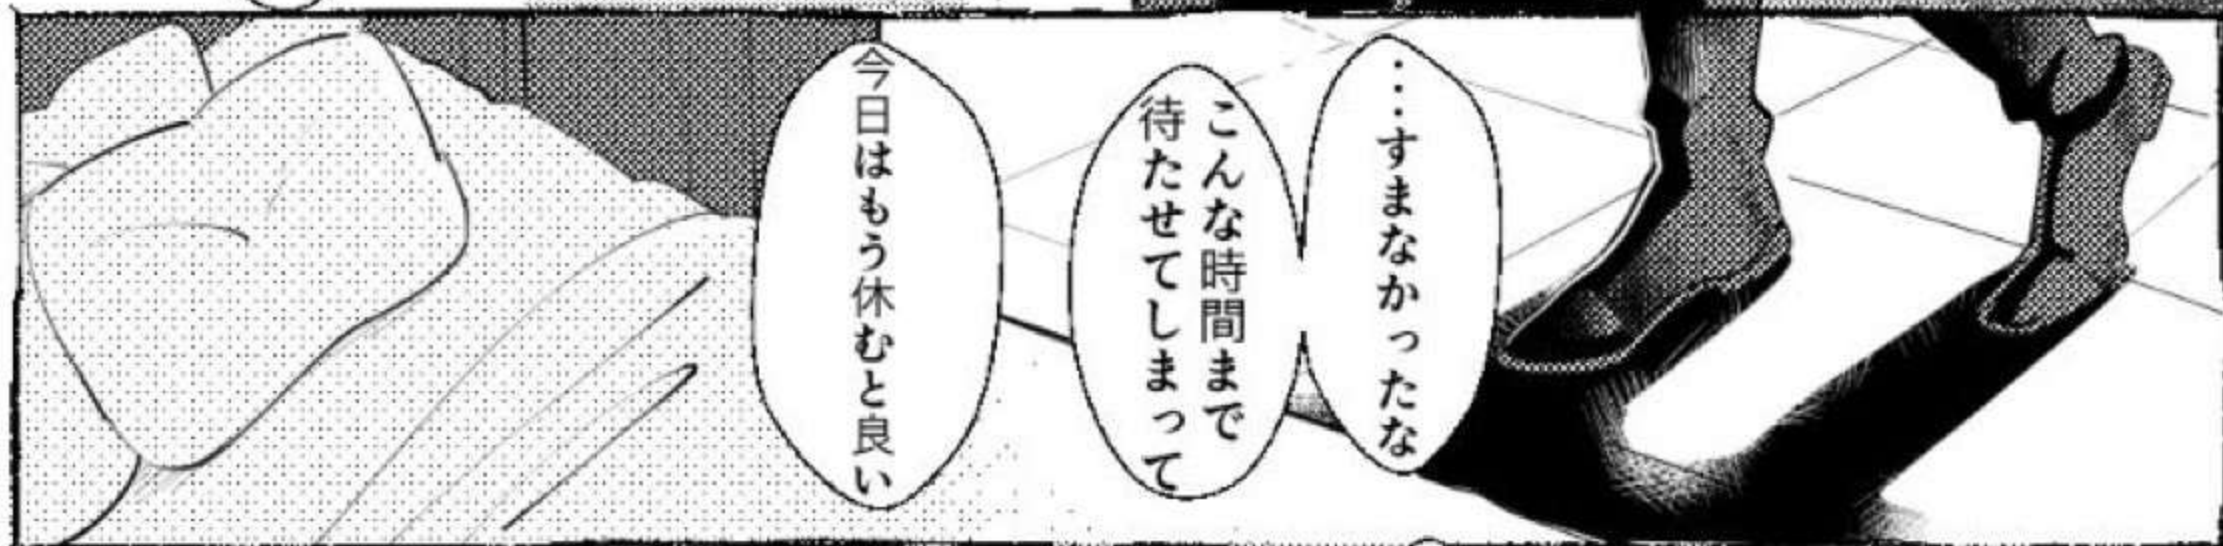 …すまなかったな
こんな時間まで
待たせてしまって
今日はもう休むと良い